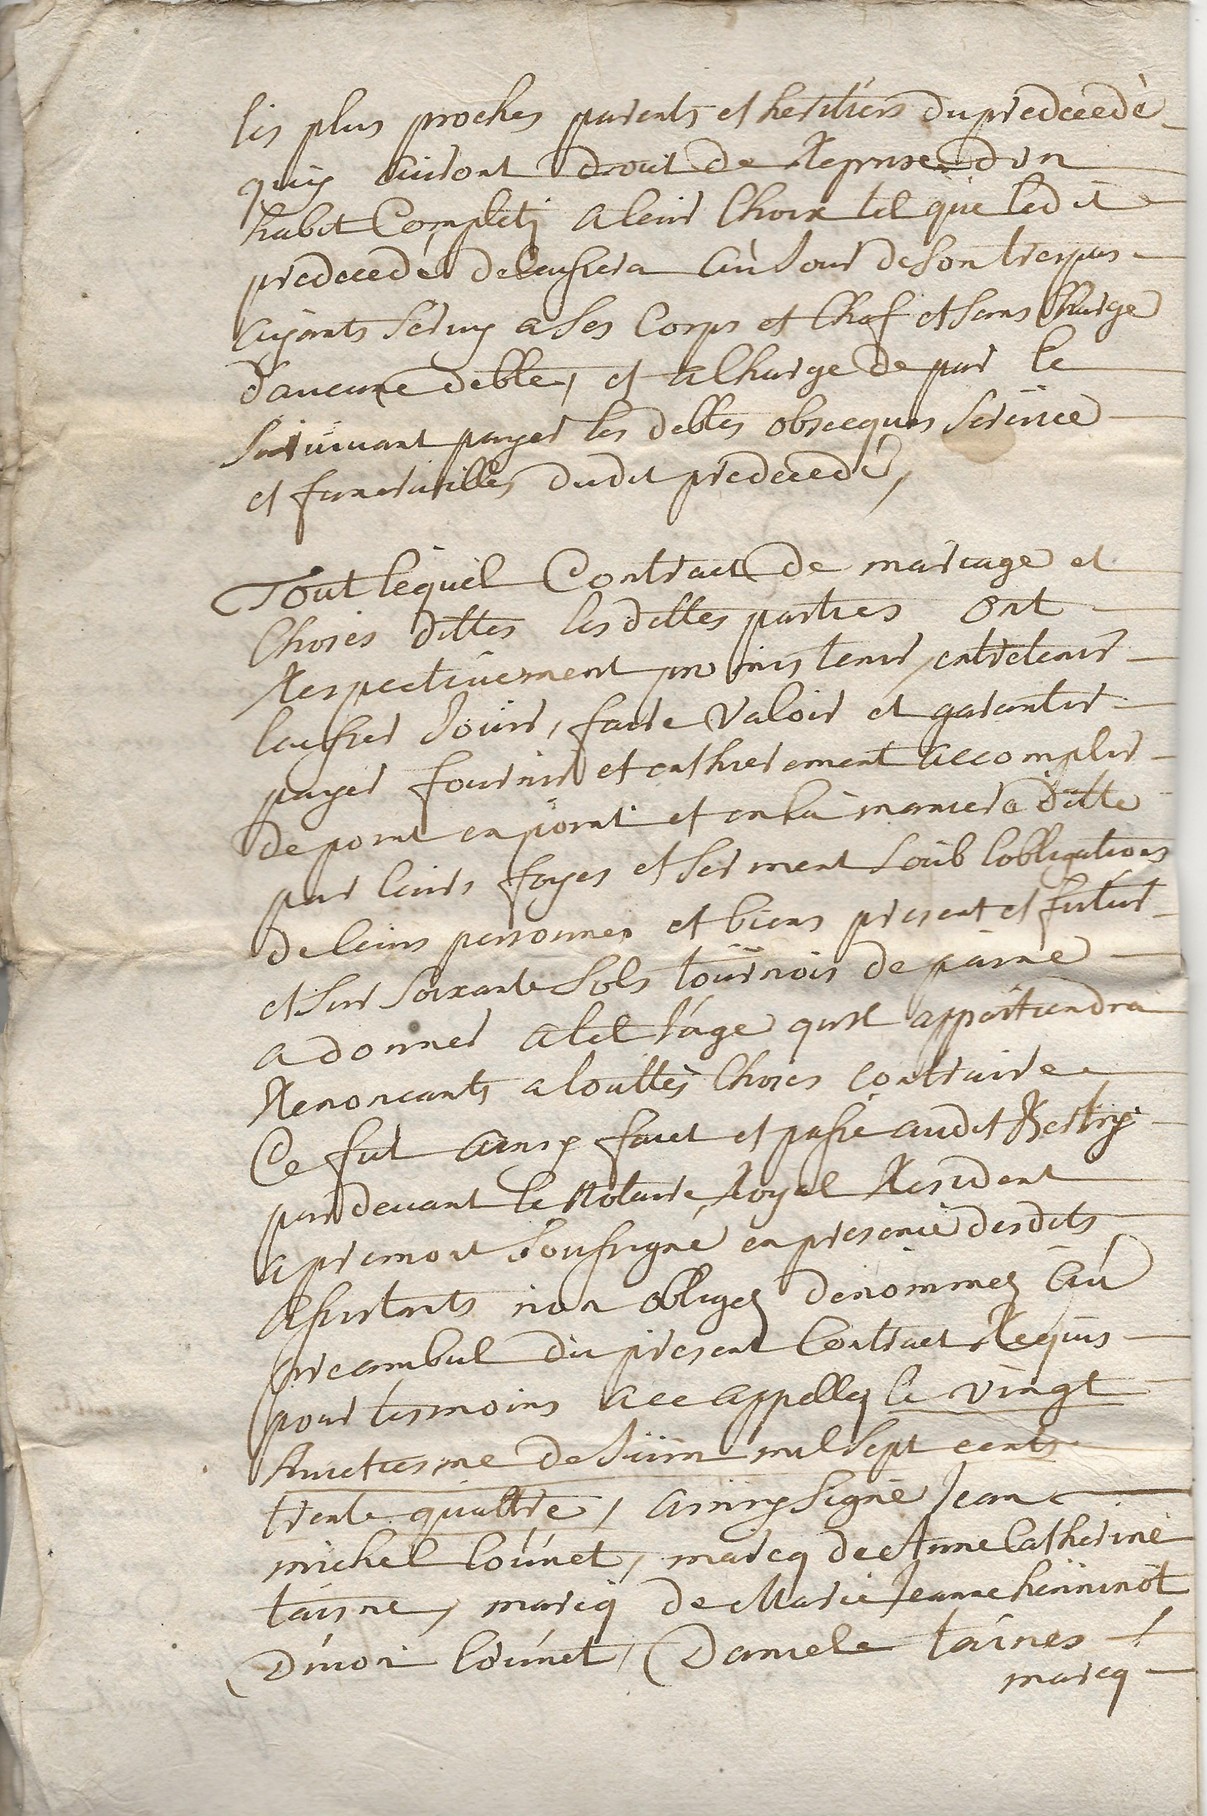 les plus proches parents et heritiers du predecedé
quy auront droit de Reprise d'un
habit Complet a leur Choix tel que ledit
predecedé delaissera au Jour de son trespas
ayants servy a ses Corps et Chef et sans Charge
d'aucune debte, et a Charge de par le
survivant payer les debtes obsecques service
et funerailles dudit predecedé,
Tout lequel Contract de mariage et
Choses dittes lesdittes parties ont
Respectivement promis tenir, entretenir
laisser Jouir, faire valoir et garantir
payer fournir et entherement accomplir
de point en point et en la maniere ditte
par leurs foyes et serment soub lobligations
de leurs personnes et biens present et futur
et sur soixante sols tournois de paine
a donner a tel Juge qu'il appartiendra
Renoncants a touttes Choses Contraire
Ce fut ainsy fait et passé audit
pardevant le Notaire Royal Resident
a premont soussigné en presence desdits
assistants non obligez denommez au
preambul du present Contract Requis
pour tesmoins a ce appellez le vingt
huictiesme de Juin mil sept cents
trente quattre, ainsy signé Jean
michel Counet, marcq de Anne Catherine
taisne, marcq de Marie Jeanne hénninot
Dinon Counet, Daniele taines
marcq